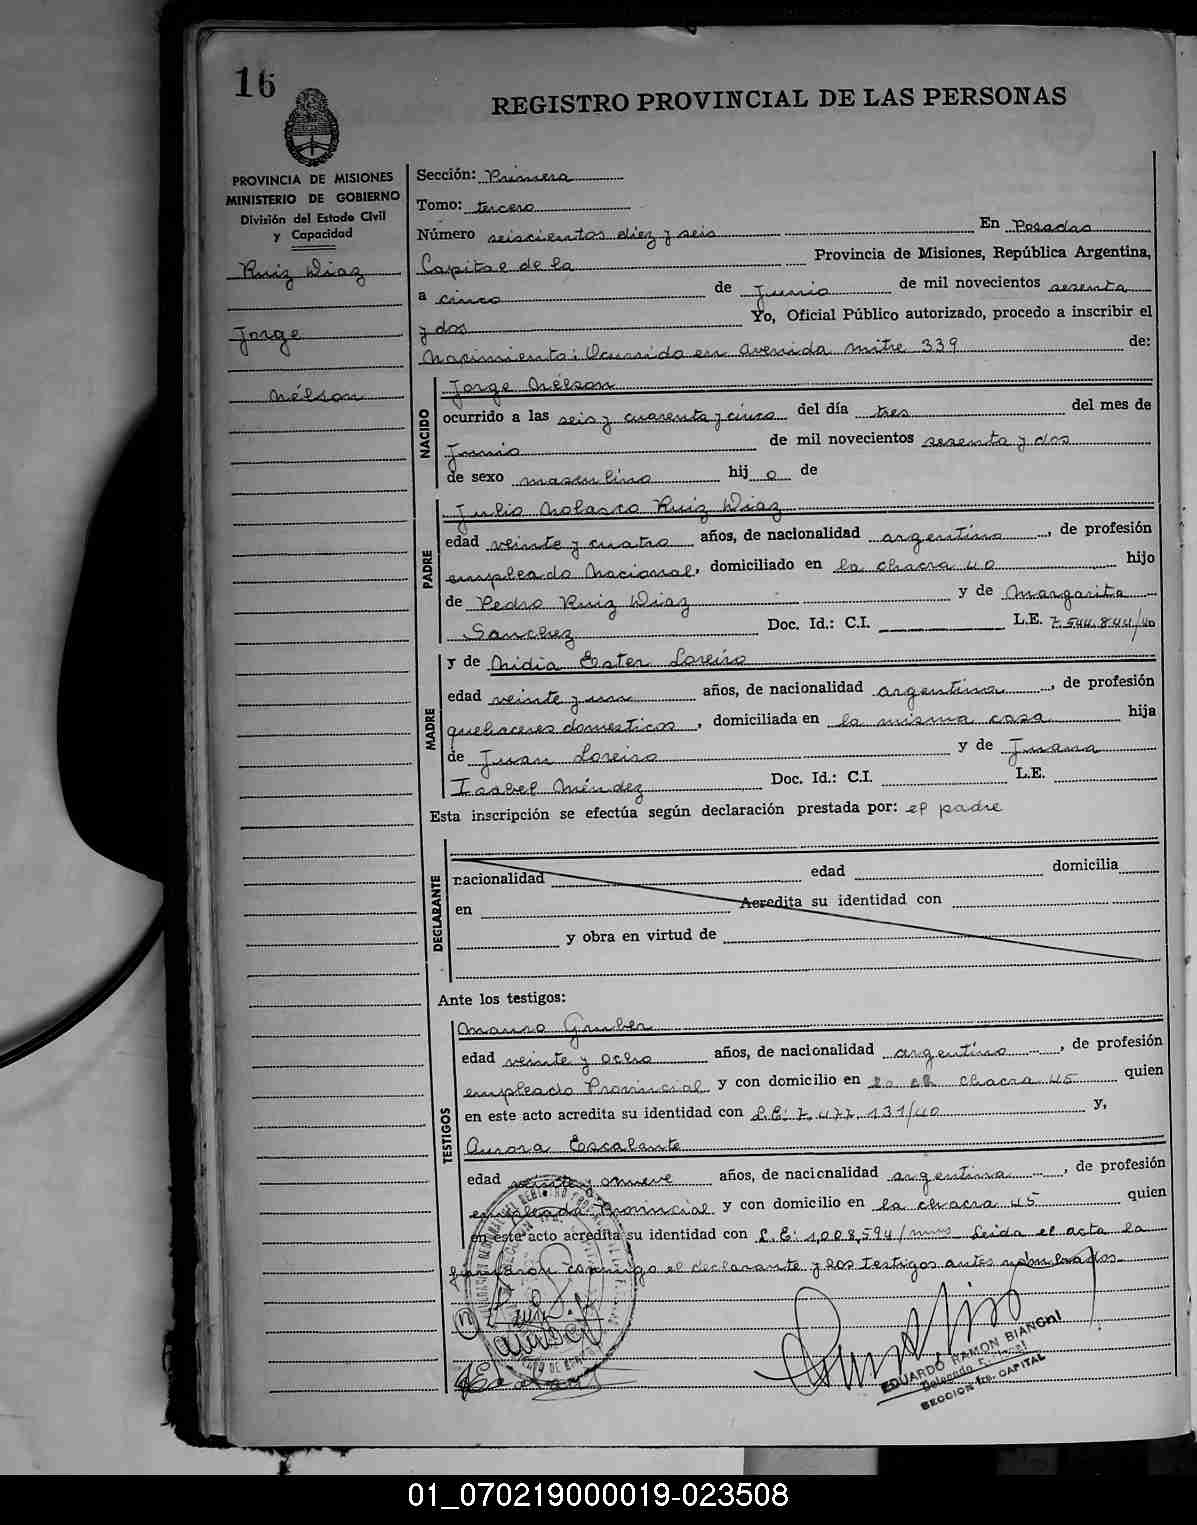 16
REGISTRO PROVINCIAL DE LAS PERSONAS
PROVINCIA DE MISIONES
MINISTERIO DE GOBIERNO
División del Estado Civil
y Capacidad
Ruiz Diaz
Jorge
Nélson
Sección: Primera
Tomo: tercero
Número seiscientos diez y seis En Posadas
Capital de la Provincia de Misiones, República Argentina,
a cinco de Junio de mil novecientos sesenta
y dos Yo, Oficial Público autorizado, procedo a inscribir el
Nacimiento: Ocurrido en Avenida Mitre 339 de:
NACIDO
Jorge Nélson
ocurrido a las seis y cuarenta y cinco del día tres del mes de
Junio de mil novecientos sesenta y dos
de sexo masculino hij o de
PADRE
Julio Nolasco Ruiz Diaz
edad veinte y cuatro años, de nacionalidad argentino, de profesión
empleado Nacional, domiciliado en la chacra 40 hijo
de Pedro Ruiz Diaz y de Margarita
Sanchez Doc. Id.: C.I. L.E. 7.544.844/40
MADRE
y de Nidia Ester Loreiro
edad veinte y un años, de nacionalidad argentina, de profesión
quehaceres domesticos, domiciliada en la misma casa hija
de Juan Loreiro y de Juana
Isabel Méndez Doc. Id.: C.I. L.E.
Esta inscripción se efectúa según declaración prestada por: el padre
DECLARANTE
nacionalidad edad domicilia
en Acredita su identidad con
y obra en virtud de
Ante los testigos:
TESTIGOS
Mauro Gruber
edad veinte y ocho años, de nacionalidad argentino, de profesión
empleado Provincial y con domicilio en la chacra 45 quien
en este acto acredita su identidad con L.E: 7.477.131/40 y,
Aurora Escalante
edad veinte y nueve años, de nacionalidad argentina, de profesión
empleada Provincial y con domicilio en la chacra 45 quien
en este acto acredita su identidad con L.E: 1,008,594/ Leida el acta la
firmaron conmigo el declarante y los testigos antes nombrados
EDUARDO RAMON BIANCHI
SECCION 1ra. CAPITAL
01_070219000019-023508